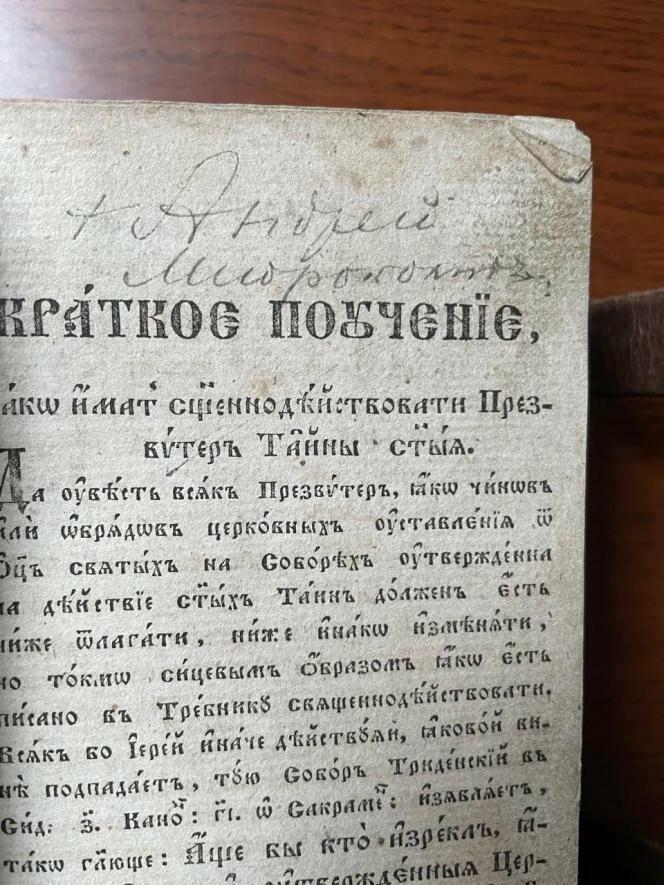 + Андрей
КРА́ТКОЕ ПОꙊЧЕНЇЕ,
ꙗ́кѡ и҆́мат̾ сщ҃еннодѣ́йствовати През-
вѵ́теръ Та̑йны ст҃ы́ѧ.
Да ᲂу҆вѣ́сть всѧ́къ Презвѵ́теръ, ꙗ҆́кѡ чи́нѡвъ
и҆лѝ ѡ҆брѧ́дѡвъ церко́вныхъ ᲂу҆ставле́нїѧ ѿ
Ѻ҆ц҃ъ свѧты́хъ на Собо́рѣхъ ᲂу҆твержде́нна
на дѣ́йствїе ст҃ы́хъ Та́инъ до́лженъ є҆́сть
ни́же ѿлага́ти, ни́же и҆на́кѡ и҆змѣнѧ́ти,
но то́кмѡ си́цевымъ ѻ҆́бразомъ ꙗ҆́кѡ є҆́сть
пи́сано въ Тре́бникꙋ свѧщеннодѣ́йствовати.
Всѧ́къ бо І҆ере́й и҆на́че дѣ́йствꙋѧй, ꙗ҆ково́й ви-
нѣ̀ подпада́етъ, то́ю Собо́ръ Триде́нскїй въ
Сѝд: з҃. Кано́: г҃і. ѡ҆ Сакраме́: и҆зѧвлѧ́етъ,
та́кѡ гл҃юще: А҆́ще бы кто̀ и҆зре́клъ, ꙗ҆́-
ᲂу҆твержде́нныѧ Цер-